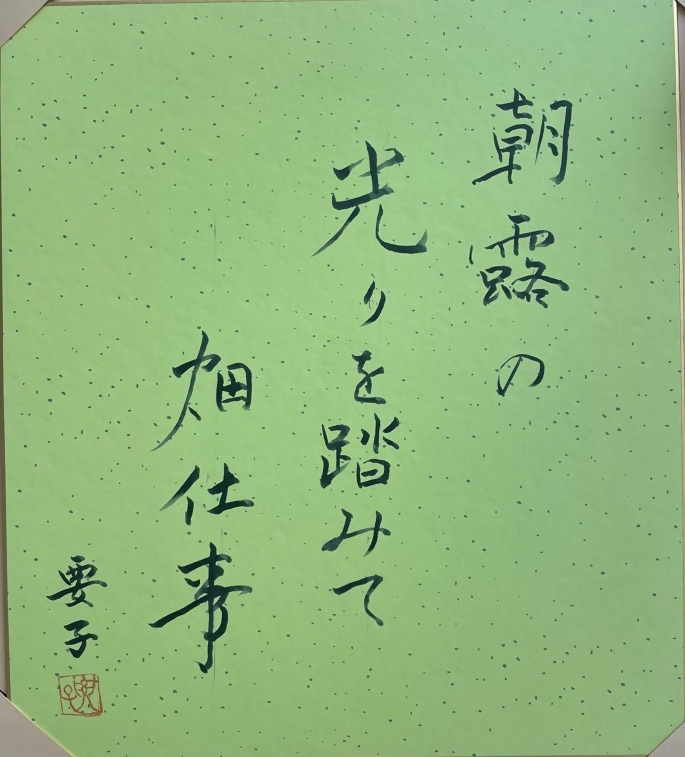 朝露の
光りを踏みて
畑仕事
要子